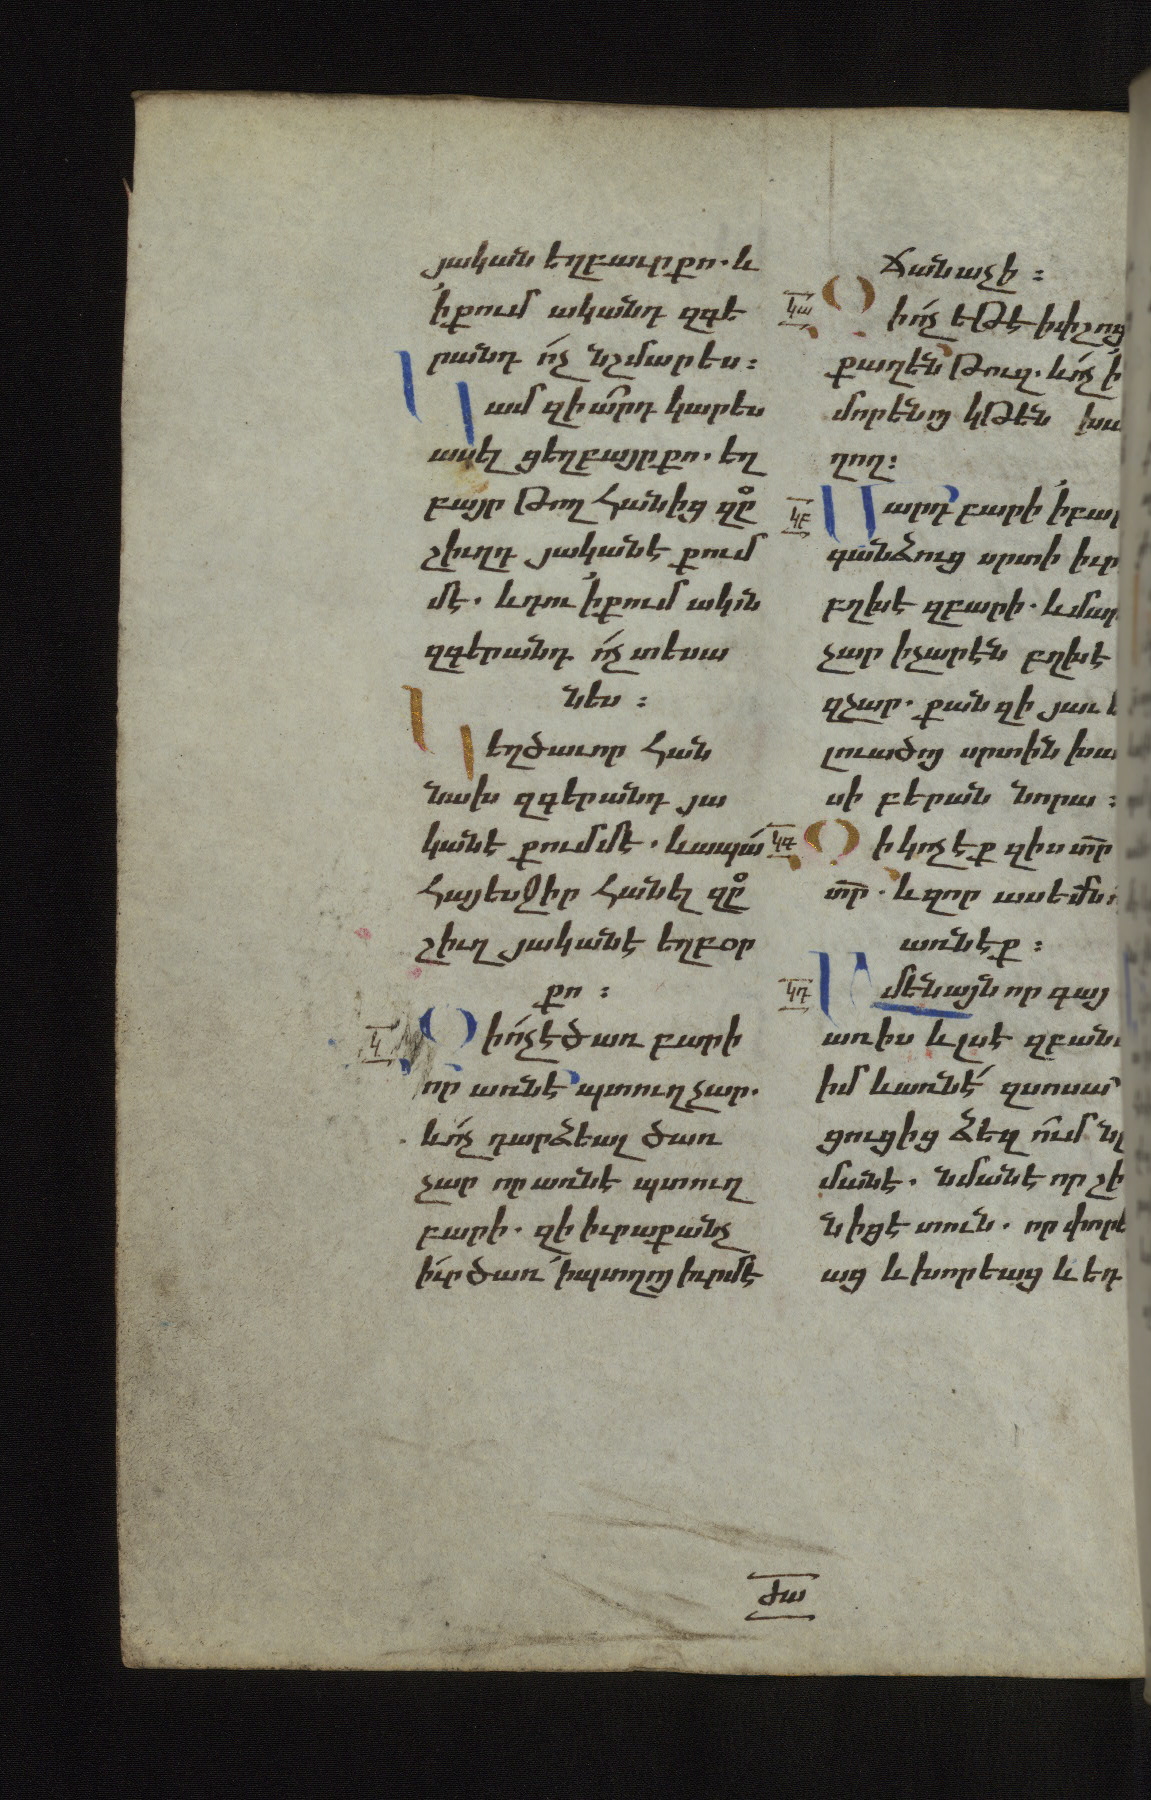 յական եղբաւրքո. և
՛իքում ականդ զգե
րանդ ոչ նշմարես։
Կամ զիա՞րդ կարես
ասել ցեղբայրքո. եղ
բայր թող հանից զը
շիւղդ յականէ քում
մէ. և դու ՛իքում ական
զգերանդ ոչ տեսա
նես։
Կեղծաւոր հան
նախ զգերանդ յա
կանէ քումմէ. և ապա
հայեսջիր հանել զը
շիւղ յականէ եղբօր
քո։
Կ
Ոչ ինչ է ծառ բարի
որ առնէ պտուղ չար.
և ոչ դարձեալ ծառ
չար որ առնէ պտուղ
բարի. զի իւրաքանչ
իւր ծառ ՛իպտղոյ իւրմէ
ճանաչի։
ԿԱ
Ոչ եթէ իփշոց
քաղեն թուզ. և ոչ ՛ի
մորենոյ կթեն խա
ղող։
ԿԲ
Մարդ բարի ՛իբար
գանձուց սրտի իւր
բղխէ զբարի. և մար
չար իչարէն բղխէ
զչար. քանզի յաւե
լուածոյ սրտին խաւ
սի բերան նորա։
ԿԳ
Զի կոչէք զիս տր
տր. և զոր ասեմն ո
առնէք։
ԿԴ
Ամենայն որ գայ
առիս և լսէ զբանս
իմ և առնէ զնոսա
ցուցից ձեզ ում նը
մանէ. նմանէ որ շի
նիցէ տուն. որ փորե
աց և խորեաց և եդ
ԺԱ